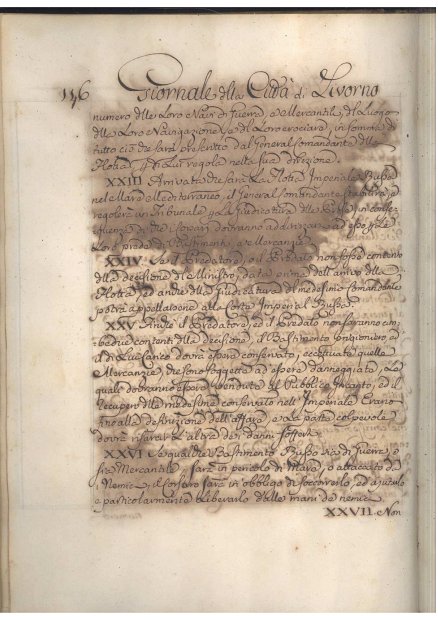 146 Giornale della Città di Livorno
numero delle Loro Navi di Guerra, e Mercantili, del Luogo
della Loro Navigazione, e del Loro crociera, in somma di
tutto ciò che sarà prescritto dal General Comandante della
Flotta, per Lui regola nella sua direzione.
XXIII Arrivata che sarà La Flotta Imperiale Russa
nel Mare Mediterraneo, il General Comandante
regolerà un Tribunale, la Giudicatura delle Prede, in conse-
guenza di che i Corsari dovranno
Loro prede, Bastimenti, e Mercanzie.
XXIV Se il Predatore, o il Predato non fosse contento
della decisione del Ministro, data prima dell'arrivo della
Flotta, ed anche della Giudicatura del medesimo Comandante
potrà appellarsene alla Corte Imperial Russa.
XXV Anche il Predatore, ed il Predato non saranno am-
bedue contenti della decisione, il Bastimento
il di Lui Carico dovrà essere conservato, eccettuate quelle
Mercanzie, che sono soggette ad essere danneggiate, Le
quali dovranno essere vendute al Pubblico Incanto, ed il
recupero della medesima conservato nell'Imperiale Erario
fino alla definizione dell'affare, e La parte colpevole
dovrà rifare l'altra dei danni sofferti.
XXVI Se qualche Bastimento Russo sia di Guerra, o
sia Mercantile, sarà in pericolo di Mare, o attaccato da
Nemici, il Corsaro sarà in obbligo di soccorrerlo, ed aiutarlo
e particolarmente liberarlo dalle mani de nemici
XXVII. Non